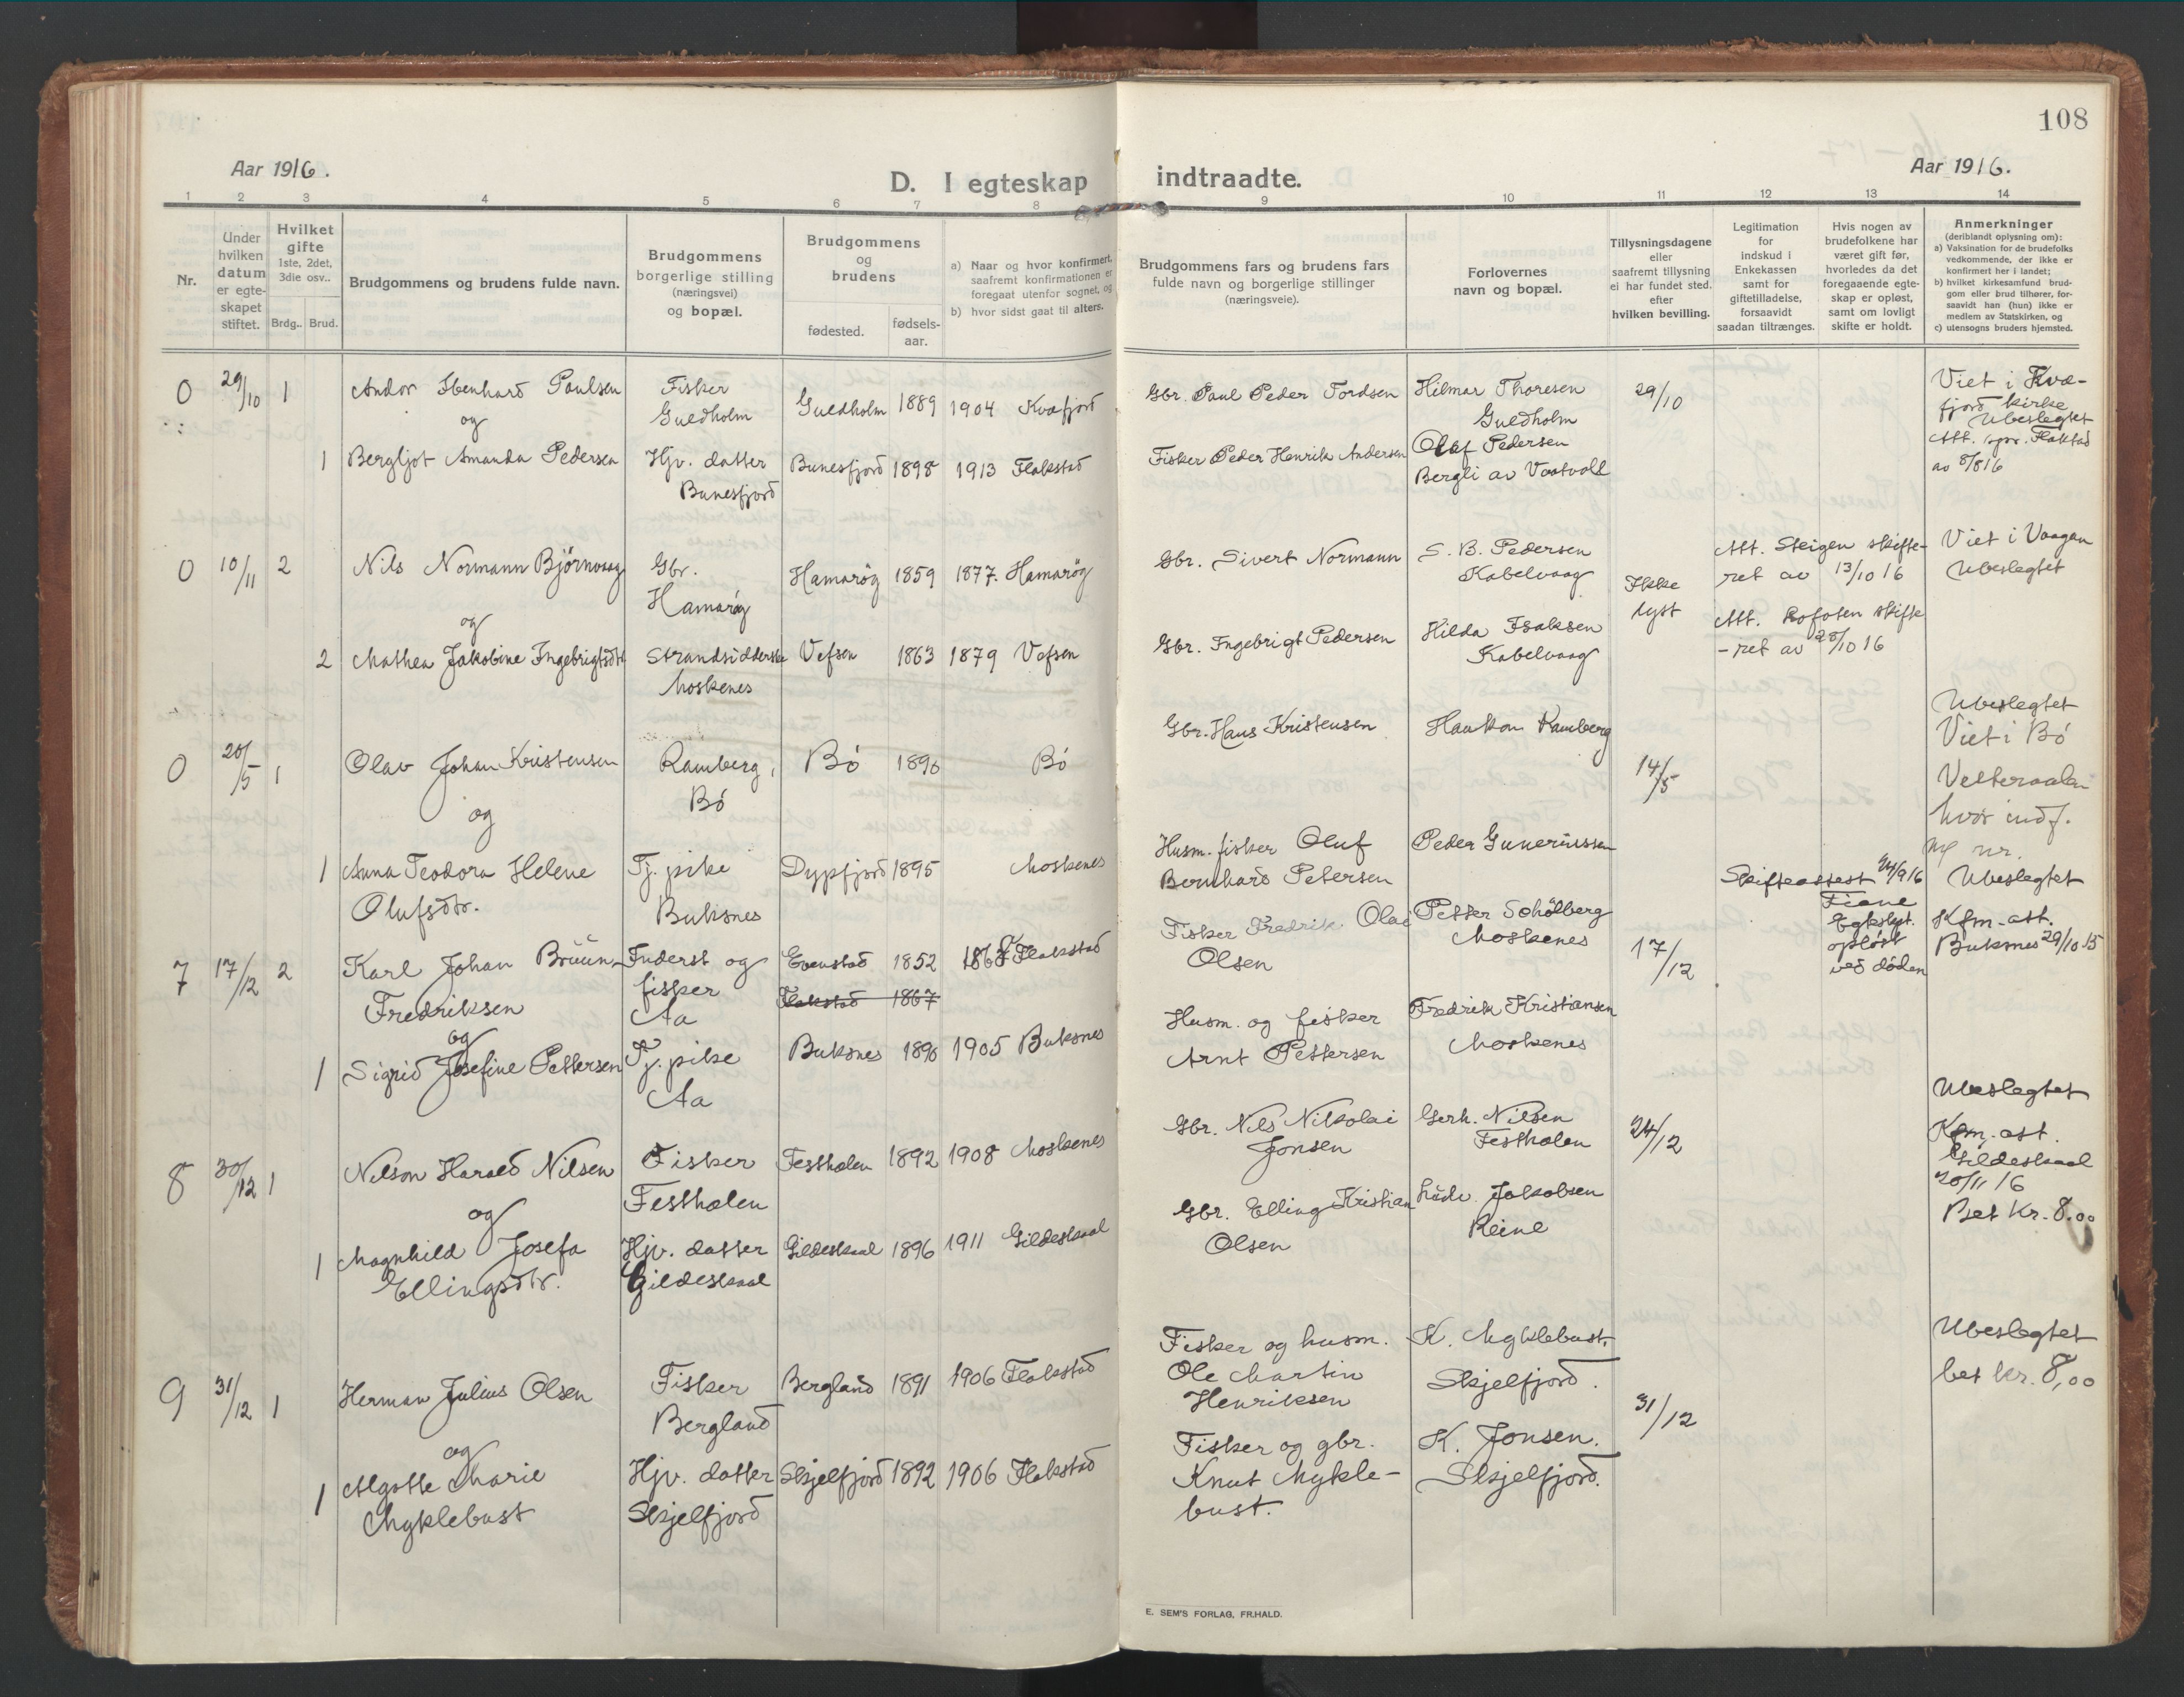 108
Aar 1916.
D. I egteskap
indtraadte.
Aar 1916.
1 2 3 4 5 6 7 8 9 10 11 12 13 14
Nr.
Under hvilken datum er egte-skapet stiftet.
Hvilket gifte
1ste, 2det, 3die osv..
Brdg.. Brud.
Brudgommens og brudens fulde navn.
Brudgommens borgerlige stilling (næringsvei) og bopæl.
Brudgommens og brudens
fødested.
fødsels-aar.
a) Naar og hvor konfirmert, saafremt konfirmationen er foregaat utenfor sognet, og
b) hvor sidst gaat til alters.
Brudgommens fars og brudens fars fulde navn og borgerlige stillinger (næringsveie).
Forlovernes navn og bopæl.
Tillysningsdagene eller saafremt tillysning ei har fundet sted, efter hvilken bevilling.
Legitimation for indskud i Enkekassen samt for giftetilladelse, forsaavidt saadan tiltrænges.
Hvis nogen av brudefolkene har været gift før, hvorledes da det foregaaende egte-skap er opløst, samt om lovligt skifte er holdt.
Anmerkninger
(deriblandt oplysning om):
a) Vaksination for de brudefolks vedkommende, der ikke er konfirmert her i landet;
b) hvilket kirkesamfund brud-gom eller brud tilhører, for-saavidt han (hun) ikke er medlem av Statskirken, og
c) utensogns bruders hjemsted.
0 29/10 1 Andor Ibenhard Paulsen Fisker Guldholm Guldholm 1889 1904 Kvæfjord
og
1 Bergljot Amanda Pedersen Hjv. datter Bunesfjord Bunesfjord 1898 1913 Flakstad
Gbr. Paul Peder Tordsen Hilmar Thoresen Guldholm 29/10
Viet i Kvæ-
fjord kirke
Ubeslegtet
Att. spr. Flakstad
av 8/8 16
Fisker Peder Henrik Andersen Olaf Pedersen
Bergli av Vaatvoll
0 10/11 2 Nils Normann Bjørnvaag Gbr. Hamarøy Hamarøy 1859 1877. Hamarøy
og
2 Mathea Jakobine Ingebrigtsdtr Strandsidderske Moskenes Vefsen 1863 1879 Vefsen
Gbr. Sivert Normann S. B. Pedersen Kabelvaag
Ikke lyst
Att. Steigen skifte-
ret av 13/10 16
Viet i Vaagan
Ubeslegtet
Gbr. Ingebrigt Pedersen Hilda Isaksen Kabelvaag
Att. Lofoten skifte
-ret av 28/10 16
0 20/5 1 Olav Johan Kristensen Ramberg, Bø Bø 1890 Bø
og
1 Anna Teodora Helene Olufsdtr. Tj. pike Buksnes Dypfjord 1895 Moskenes
Gbr. Hans Kristensen Haakon Ramberg 14/5
Ubeslegtet
Viet i Bø
Vesteraalen
hvor indf.
nr.
Husm. fisker Oluf Bernhard Petersen Peder Gunerussen
7 17/12 2 Karl Johan Brüün-Fredriksen Inderst og fisker Aa Evenstad 1852 Flakstad
Flakstad 1867
og
1 Sigrid Josefine Pettersen Tj. pike Aa Buksnes 1890 1905 Buksnes
Fisker Fredrik Olai Olsen Petter Schølberg Moskenes 17/12
Skifteattest 24/9 16
Egteskt.
opløst
ved døden
Ubeslegtet
Kfm. att.
Buksnes 29/10 15
Husm. og fisker Arnt Pettersen Fredrik Kristiansen Moskenes
8 30/12 1 Nilson Harald Nilsen Fisker Festhælen Festhælen 1892 1908 Moskenes
og
1 Magnhild Josefa Ellingsdtr. Hjv. datter Gildeskaal Gildeskaal 1896 1911 Gildeskaal
Gbr. Nils Nikolai Jonsen Gerh. Nilsen Festhælen 24/12
Ubeslegtet
Kfm. att.
Gildeskaal
20/11 16
Bet Kr. 8.00
Gbr. Elling Kristian Olsen Ludv. Jakobsen Reine
9 31/12 1 Herman Julius Olsen Fisker Bergland Bergland 1891 1906 Flakstad
og
1 Algotte Marie Myklebust Hjv. datter Skjelfjord Skjelfjord 1892 1906 Flakstad
Fisker og husm. Ole Martin Henriksen K. Myklebust. Skjelfjord. 31/12
Ubeslegtet
bet kr. 8,00
Fisker og gbr. Knut Mykle-
bust. K. Jonsen. Skjelfjord.
E. SEM'S FORLAG, FR.HALD.